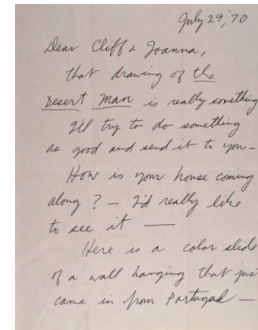 July 29, '70
Dear Cliff & Joanna,
that drawing of the
Desert Man is really something
I'll try to do something
as good and send it to you —
How is your house coming
along? — I'd really like
to see it —
Here is a color slide
of a wall hanging that just
came in from Portugal —